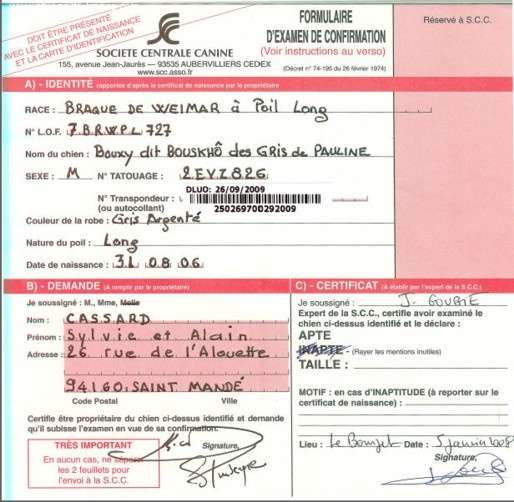 DOIT ÊTRE PRÉSENTÉ
AVEC LE CERTIFICAT DE NAISSANCE
ET LA CARTE D'IDENTIFICATION
SCC
SOCIETE CENTRALE CANINE
155, avenue Jean-Jaurès — 93535 AUBERVILLIERS CEDEX
www.scc.asso.fr
FORMULAIRE
D'EXAMEN DE CONFIRMATION
(Voir instructions au verso)
(Décret n° 74-195 du 26 février 1974)
Réservé à S.C.C.
A) - IDENTITÉ rapportées d'après le certificat de naissance par le propriétaire
RACE : BRAQUE DE WEIMAR à Poil Long
N° L.O.F. 7.B.R.W.P.L 727
Nom du chien : Bouxy dit BOUSKHÔ des GRIS de PAULINE
SEXE : M N° TATOUAGE : 2EYZ826
DLUO: 26/09/2009
N° Transpondeur :
(ou autocollant) 250269700292009
Couleur de la robe : Gris Argenté
Nature du poil : Long
Date de naissance : 31 08 06
B) - DEMANDE (A remplir par le propriétaire)
Je soussigné : M., Mme, Melle
Nom : CASSARD
Prénom : Sylvie et Alain
Adresse : 26 rue de l'Alouette
94160 SAINT MANDÉ
Code Postal Ville
Certifie être propriétaire du chien ci-dessus identifié et demande
qu'il subisse l'examen en vue de sa confirmation.
TRÈS IMPORTANT
En aucun cas, ne séparer
les 2 feuillets pour
l'envoi à la S.C.C.
Signature,
C) - CERTIFICAT (A établir par l'expert de la S.C.C.)
Je soussigné : J. GOURIE
Expert de la S.C.C., certifie avoir examiné le
chien ci-dessus identifié et le déclare :
APTE
INAPTE - (Rayer les mentions inutiles)
TAILLE :
MOTIF : en cas d'INAPTITUDE (à reporter sur le
certificat de naissance) :
Lieu : Le Bourget Date : 5 janvier 2008
Signature,